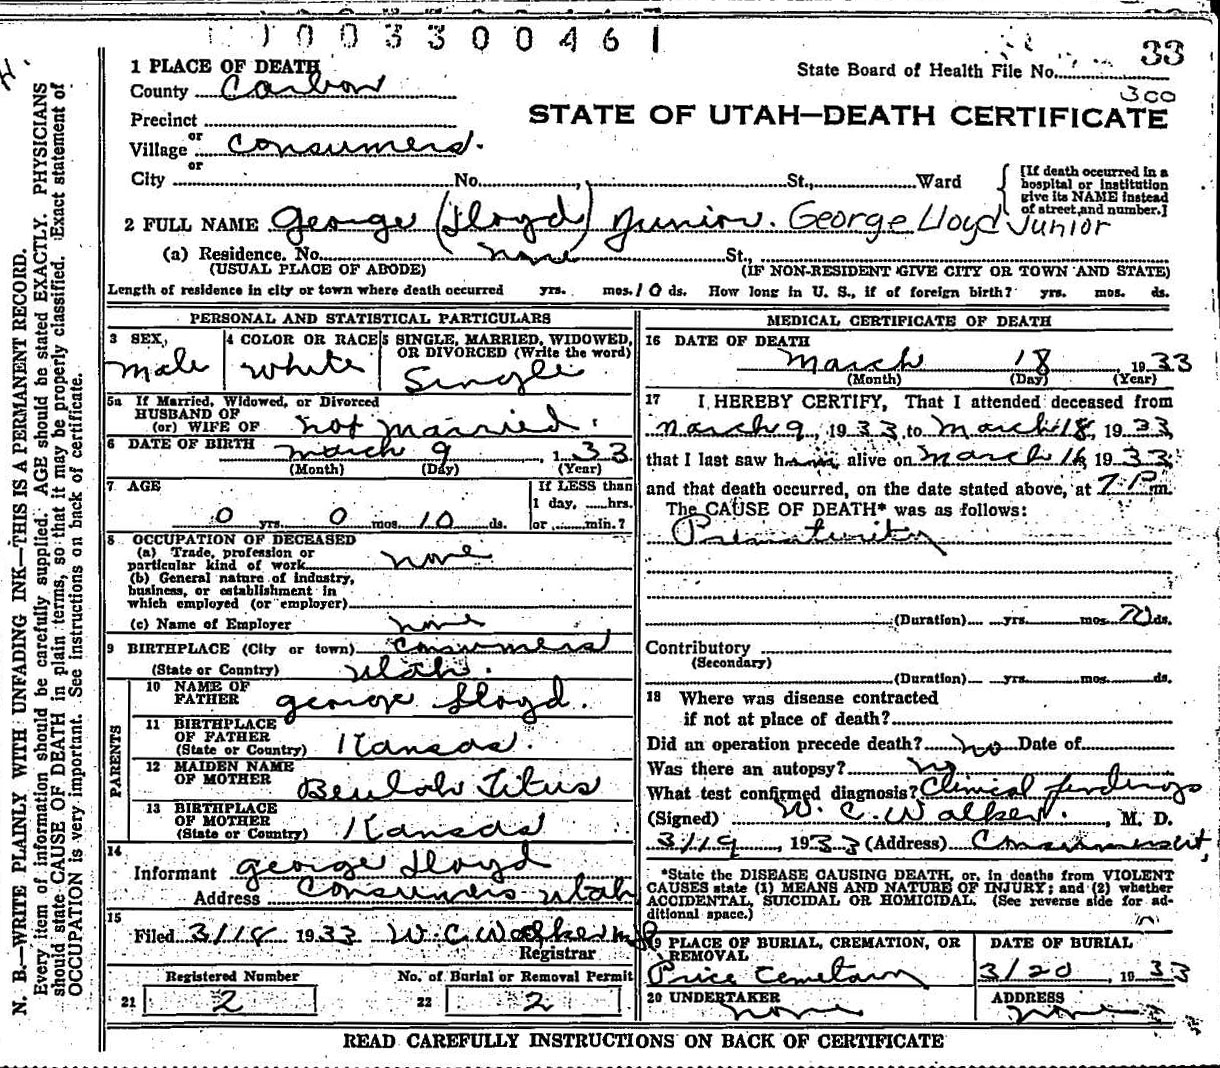 1003300461
33
State Board of Health File No.
300
STATE OF UTAH—DEATH CERTIFICATE
1 PLACE OF DEATH
County Carbon
Precinct
or
Village Consumers.
or
City No. St., Ward
[If death occurred in a
hospital or institution
give its NAME instead
of street, and number.]
2 FULL NAME George (Lloyd) Junior. George Lloyd Junior
(a) Residence. No. none St.,
(USUAL PLACE OF ABODE) (IF NON-RESIDENT GIVE CITY OR TOWN AND STATE)
Length of residence in city or town where death occurred yrs. mos. 10 ds. How long in U. S., if of foreign birth? yrs. mos. ds.
PERSONAL AND STATISTICAL PARTICULARS
3 SEX, Male
4 COLOR OR RACE White
5 SINGLE, MARRIED, WIDOWED,
OR DIVORCED (Write the word)
Single
5a If Married, Widowed, or Divorced
HUSBAND OF
(or) WIFE OF not married.
6 DATE OF BIRTH March 9, 1 33
(Month) (Day) (Year)
7 AGE
0 yrs. 0 mos. 10 ds.
If LESS than
1 day, hrs.
or min.?
8 OCCUPATION OF DECEASED
(a) Trade, profession or
particular kind of work none
(b) General nature of industry,
business, or establishment in
which employed (or employer)
(c) Name of Employer none
9 BIRTHPLACE (City or town) Consumers
(State or Country) Utah.
PARENTS
10 NAME OF
FATHER George Lloyd.
11 BIRTHPLACE
OF FATHER
(State or Country) Kansas.
12 MAIDEN NAME
OF MOTHER Beulah Titus
13 BIRTHPLACE
OF MOTHER
(State or Country) Kansas
14
Informant George Lloyd
Address Consumers Utah
15
Filed 3/18 1933 W. C. Walker
Registrar
Registered Number
21 2
No. of Burial or Removal Permit
22 2
MEDICAL CERTIFICATE OF DEATH
16 DATE OF DEATH
March 18 1933
(Month) (Day) (Year)
17 I HEREBY CERTIFY, That I attended deceased from
March 9, 1933, to March 18, 1933,
that I last saw him alive on March 16 1933,
and that death occurred, on the date stated above, at 7 P m.
The CAUSE OF DEATH* was as follows:
Prematurity
(Duration) yrs. mos. ds.
Contributory
(Secondary)
(Duration) yrs. mos. ds.
18 Where was disease contracted
if not at place of death?
Did an operation precede death? no Date of
Was there an autopsy? no
What test confirmed diagnosis? Clinical findings
(Signed) W. C. Walker., M. D.
3/19, 1933 (Address) Consumers Ut,
*State the DISEASE CAUSING DEATH, or, in deaths from VIOLENT
CAUSES state (1) MEANS AND NATURE OF INJURY; and (2) whether
ACCIDENTAL, SUICIDAL OR HOMICIDAL. (See reverse side for ad-
ditional space.)
19 PLACE OF BURIAL, CREMATION, OR
REMOVAL
Price Cemetary
DATE OF BURIAL
3/20, 1933
20 UNDERTAKER
none
ADDRESS
none
READ CAREFULLY INSTRUCTIONS ON BACK OF CERTIFICATE
N. B.—WRITE PLAINLY WITH UNFADING INK—THIS IS A PERMANENT RECORD.
Every item of information should be carefully supplied. AGE should be stated EXACTLY. PHYSICIANS
should state CAUSE OF DEATH in plain terms, so that it may be properly classified. Exact statement of
OCCUPATION is very important. See instructions on back of certificate.